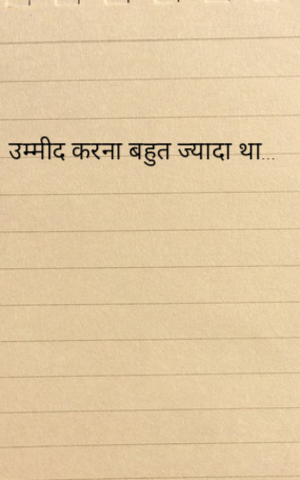 उम्मीद करना बहुत ज्यादा था...